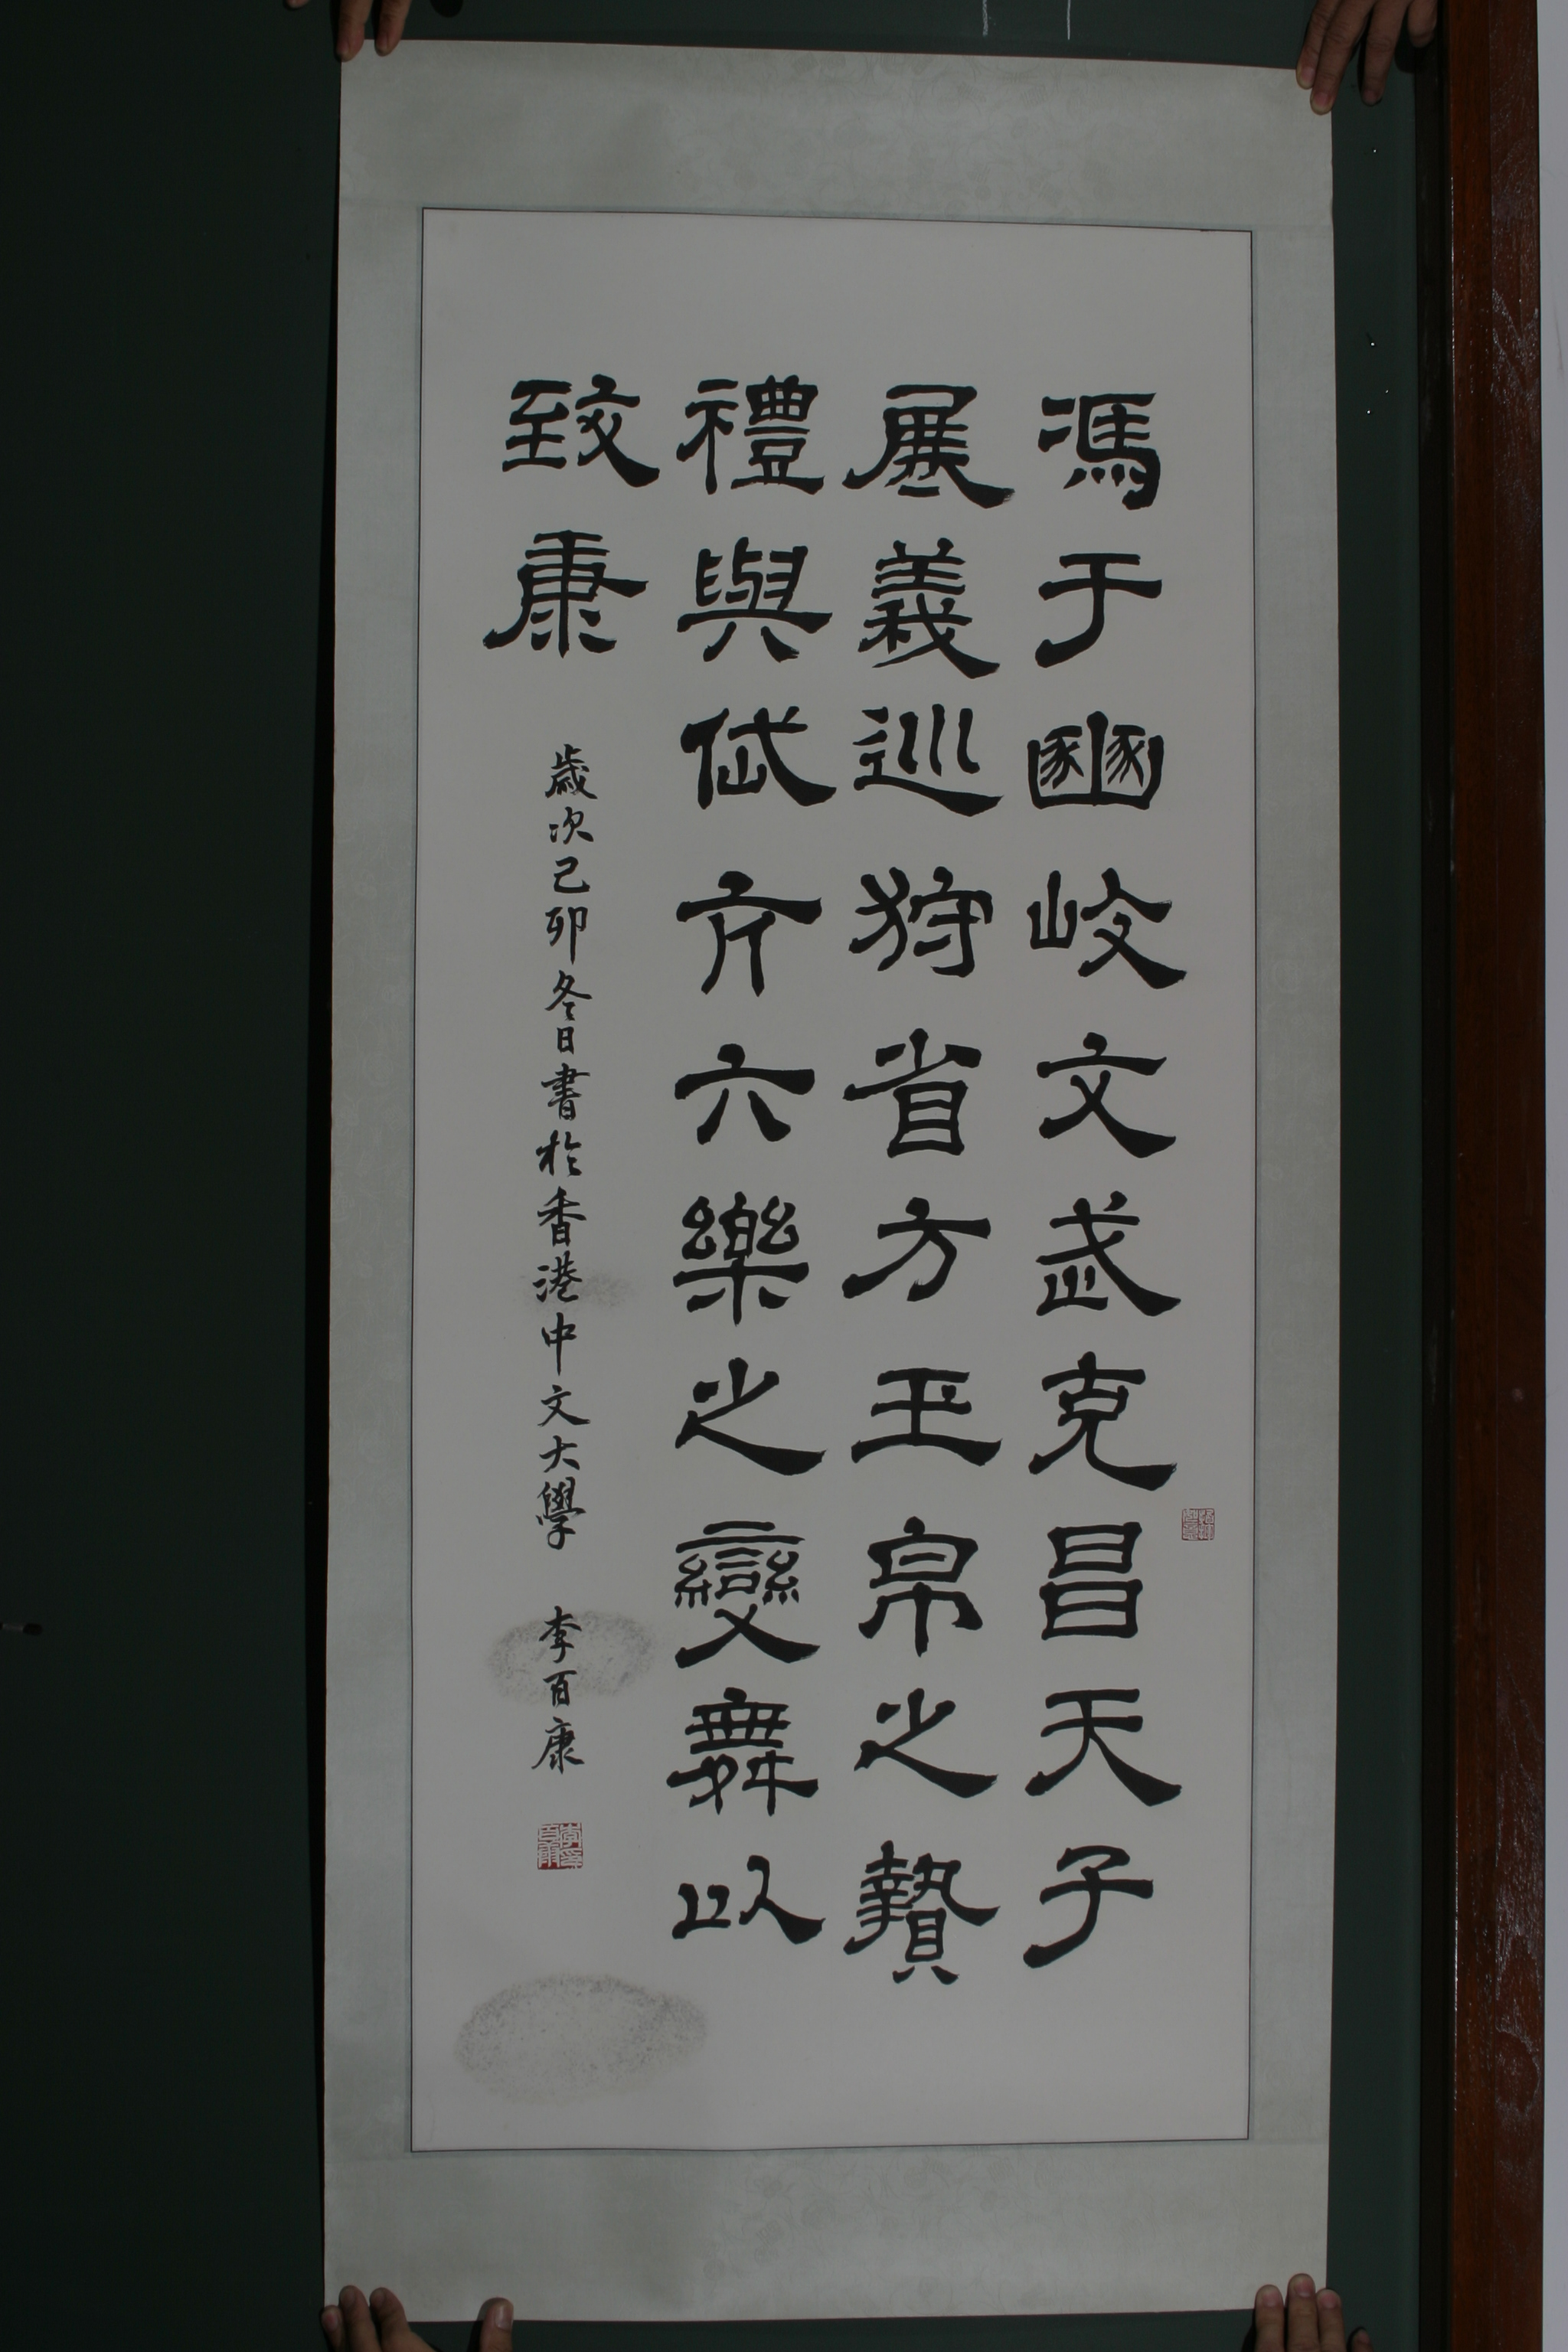 馮于豳岐文武克昌天子
展義巡狩省方玉帛之贄
禮與岱亢六樂之變舞以
致康
歲次己卯冬日書於香港中文大學 李百康